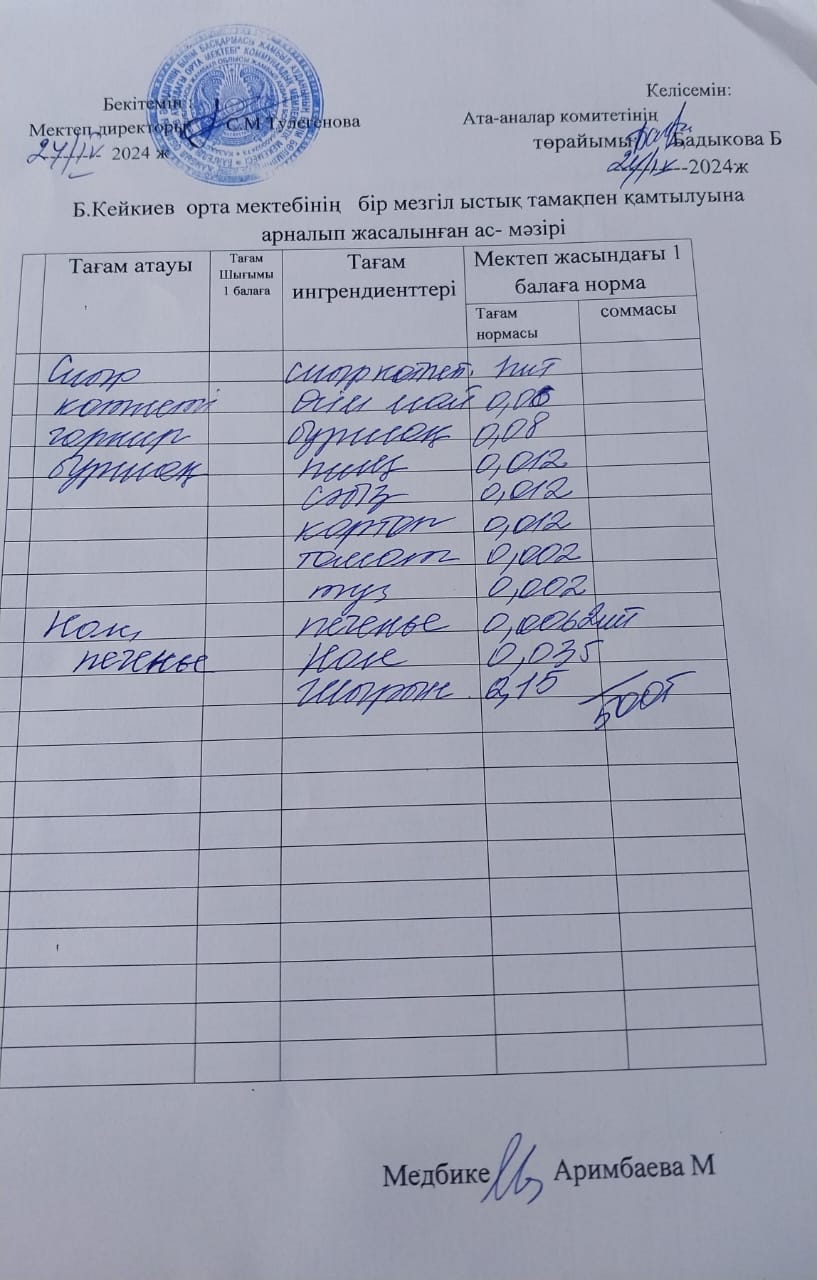 Бекітемін: Келісемін:
Мектеп директоры С.М Тулегенова Ата-аналар комитетінің
24/IX 2024 ж төрайымы Бадыкова Б
24/IX-2024ж
Б.Кейкиев орта мектебінің бір мезгіл ыстық тамақпен қамтылуына
арналып жасалынған ас- мәзірі
Тағам атауы Тағам Шығымы 1 балаға Тағам ингрендиенттері Мектеп жасындағы 1 балаға норма
Тағам нормасы соммасы
Сиыр сиыр котлет. 1шт
котлеті Өсім май
гарнир бұршақ 0,08
бұршақ пияз 0,012
сәбіз 0,012
картоп 0,012
томат 0,002
тұз 0,002
Нан, печенье 2шт
печенье Нан 0,035
Шырын 0,15
500т
Медбике Аримбаева М